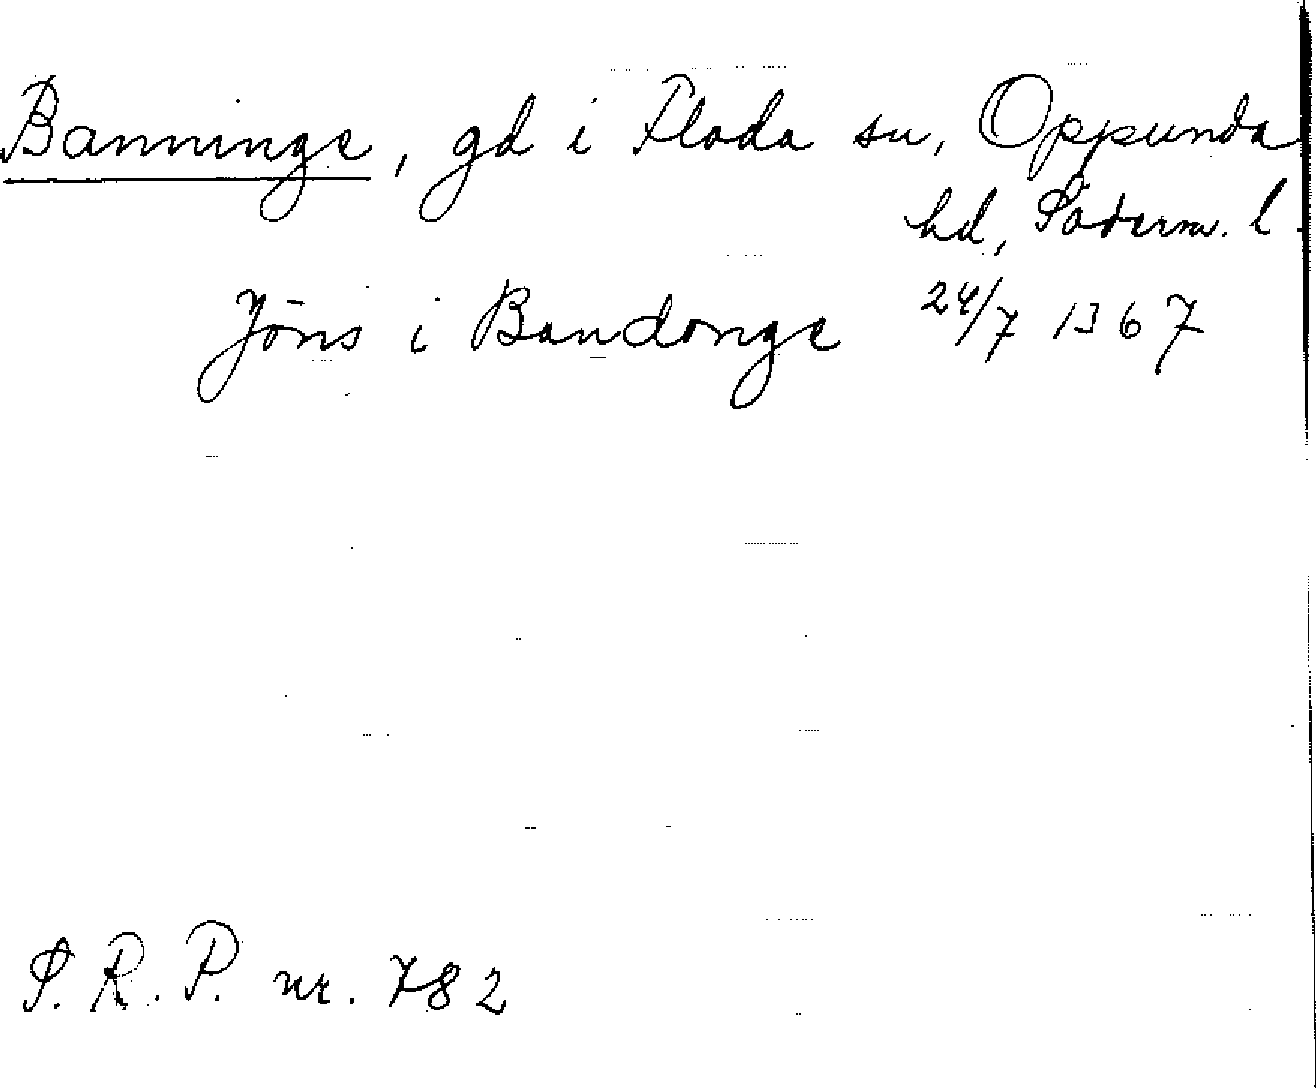 Banninge, gd i Floda sn, Oppunda
hd, Söderm. l.
Jöns i Bandonge 24/7 1367
S. R. P. nr. 782